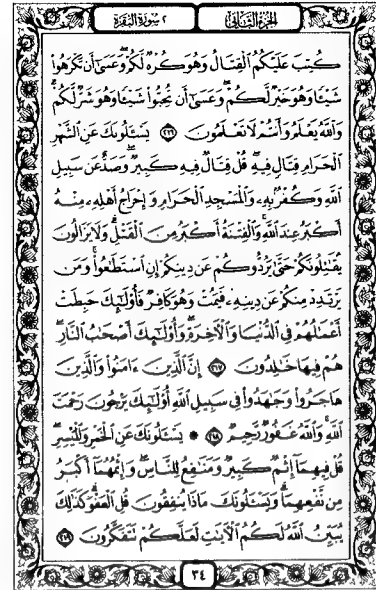 الجزء الثاني ٢ سورة البقرة
كُتِبَ عَلَيْكُمُ ٱلْقِتَالُ وَهُوَ كُرْهٌ لَّكُمْ وَعَسَىٰٓ أَن تَكْرَهُوا۟
شَيْـًٔا وَهُوَ خَيْرٌ لَّكُمْ وَعَسَىٰٓ أَن تُحِبُّوا۟ شَيْـًٔا وَهُوَ شَرٌّ لَّكُمْ
وَٱللَّهُ يَعْلَمُ وَأَنتُمْ لَا تَعْلَمُونَ ٢١٦ يَسْـَٔلُونَكَ عَنِ ٱلشَّهْرِ
ٱلْحَرَامِ قِتَالٍ فِيهِ قُلْ قِتَالٌ فِيهِ كَبِيرٌ وَصَدٌّ عَن سَبِيلِ
ٱللَّهِ وَكُفْرٌۢ بِهِۦ وَٱلْمَسْجِدِ ٱلْحَرَامِ وَإِخْرَاجُ أَهْلِهِۦ مِنْهُ
أَكْبَرُ عِندَ ٱللَّهِ وَٱلْفِتْنَةُ أَكْبَرُ مِنَ ٱلْقَتْلِ وَلَا يَزَالُونَ
يُقَـٰتِلُونَكُمْ حَتَّىٰ يَرُدُّوكُمْ عَن دِينِكُمْ إِنِ ٱسْتَطَـٰعُوا۟ وَمَن
يَرْتَدِدْ مِنكُمْ عَن دِينِهِۦ فَيَمُتْ وَهُوَ كَافِرٌ فَأُو۟لَـٰٓئِكَ حَبِطَتْ
أَعْمَـٰلُهُمْ فِى ٱلدُّنْيَا وَٱلْـَٔاخِرَةِ وَأُو۟لَـٰٓئِكَ أَصْحَـٰبُ ٱلنَّارِ
هُمْ فِيهَا خَـٰلِدُونَ ٢١٧ إِنَّ ٱلَّذِينَ ءَامَنُوا۟ وَٱلَّذِينَ
هَاجَرُوا۟ وَجَـٰهَدُوا۟ فِى سَبِيلِ ٱللَّهِ أُو۟لَـٰٓئِكَ يَرْجُونَ رَحْمَتَ
ٱللَّهِ وَٱللَّهُ غَفُورٌ رَّحِيمٌ ٢١٨ * يَسْـَٔلُونَكَ عَنِ ٱلْخَمْرِ وَٱلْمَيْسِرِ
قُلْ فِيهِمَآ إِثْمٌ كَبِيرٌ وَمَنَـٰفِعُ لِلنَّاسِ وَإِثْمُهُمَآ أَكْبَرُ
مِن نَّفْعِهِمَا وَيَسْـَٔلُونَكَ مَاذَا يُنفِقُونَ قُلِ ٱلْعَفْوَ كَذَٰلِكَ
يُبَيِّنُ ٱللَّهُ لَكُمُ ٱلْـَٔايَـٰتِ لَعَلَّكُمْ تَتَفَكَّرُونَ ٢١٩
٣٤